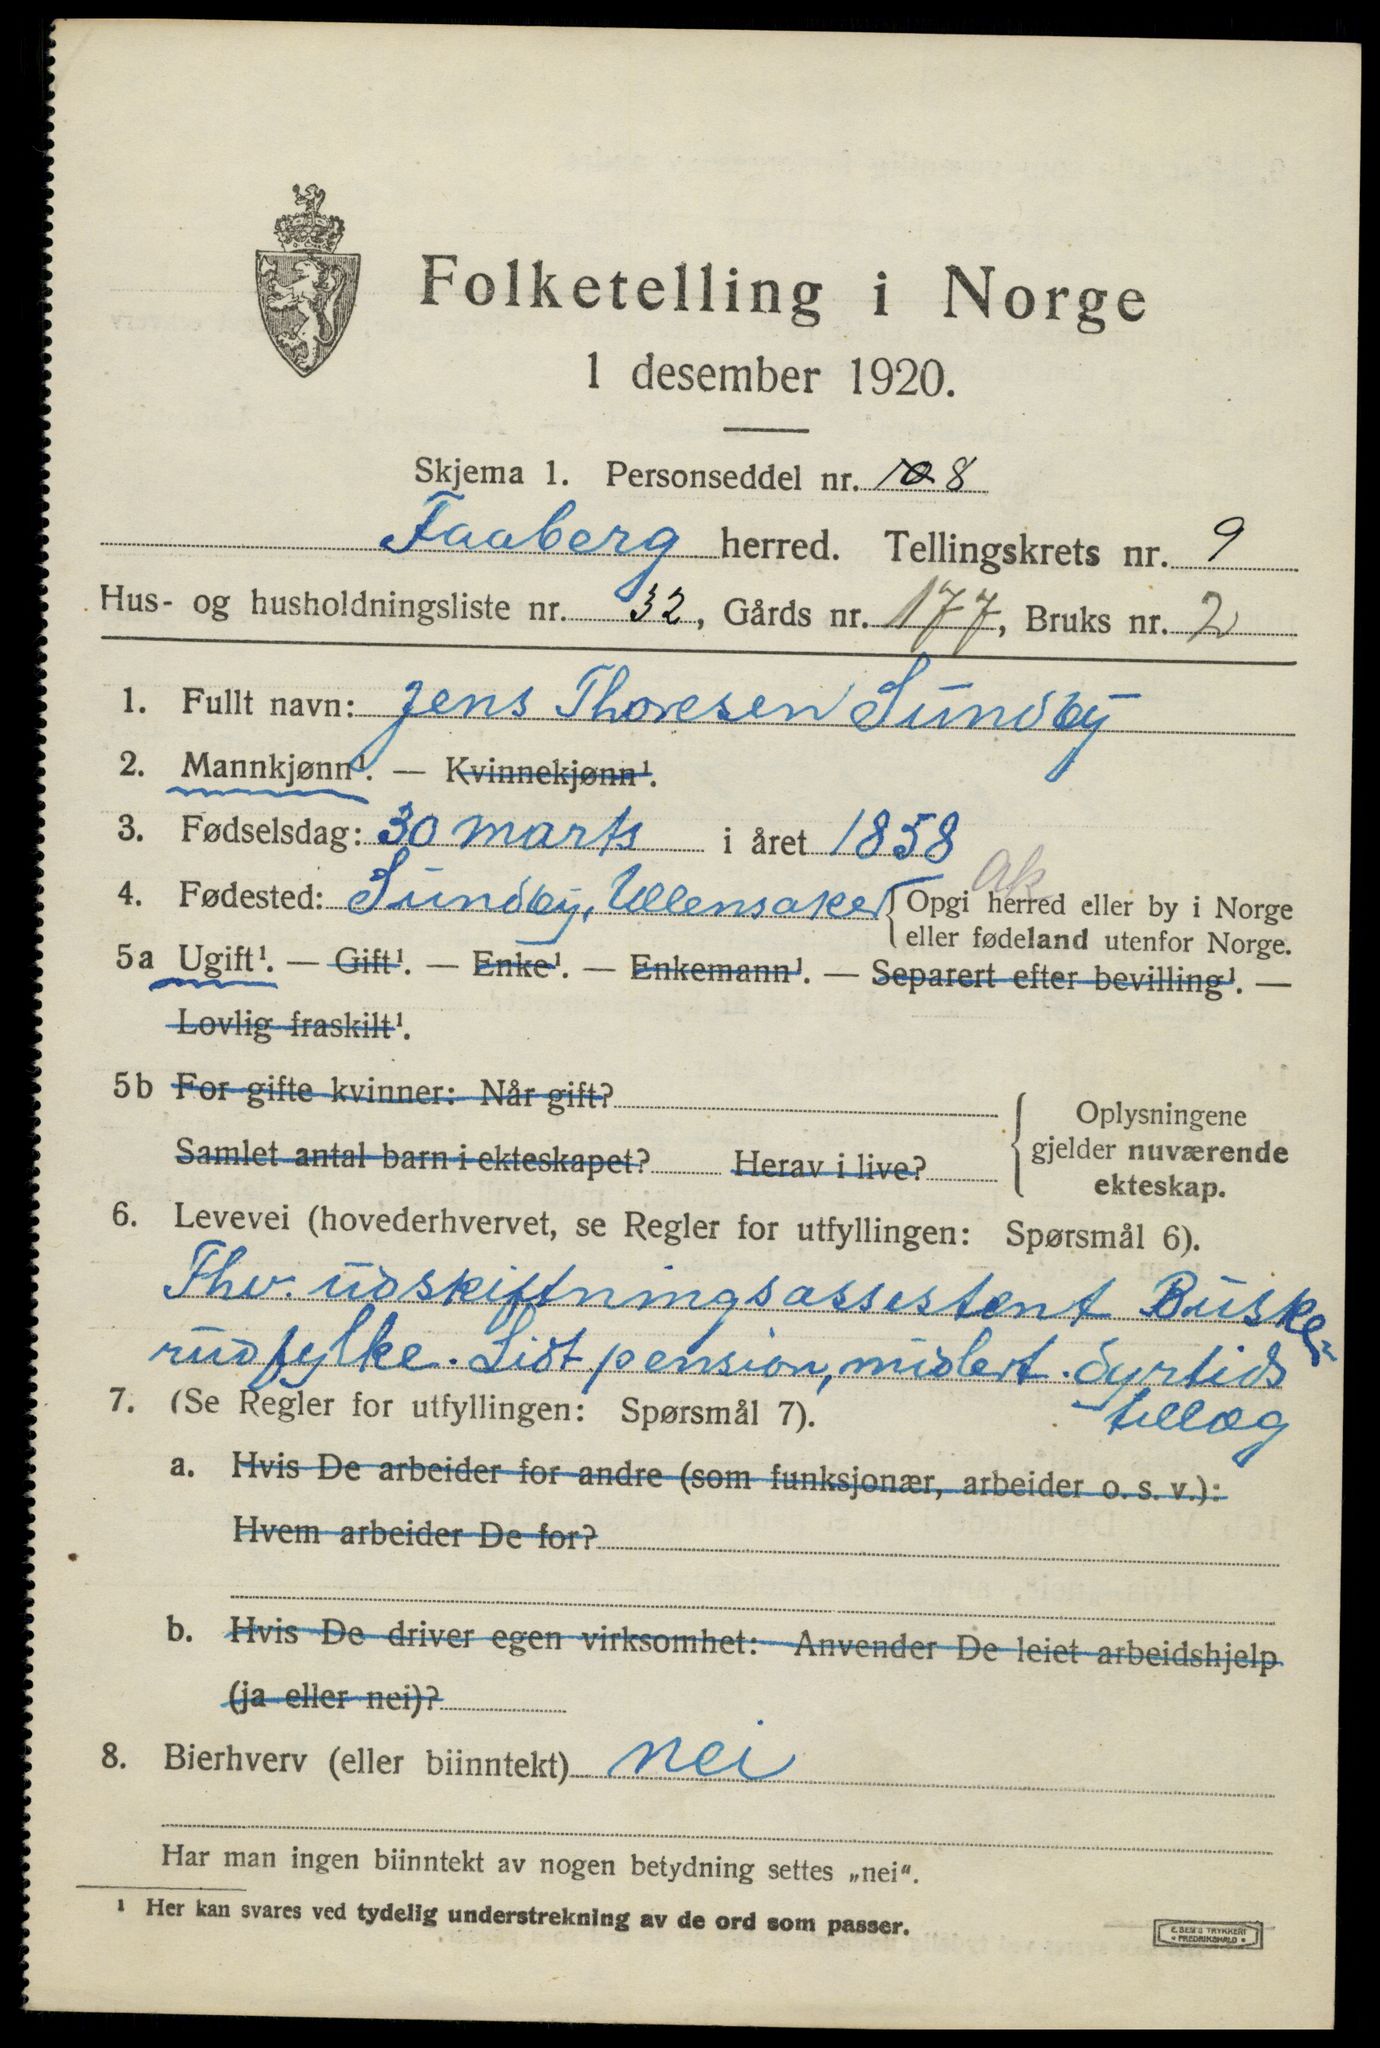 Folketelling i Norge
1 desember 1920.
Skjema 1. Personseddel nr. 8
Faaberg herred. Tellingskrets nr. 9
Hus- og husholdningsliste nr. 32, Gårds nr. 177, Bruks nr. 2
1. Fullt navn: Jens Thoresen Sundby
2. Mannkjønn¹. — Kvinnekjønn¹.
3. Fødselsdag: 30 marts i året 1858
Ak
4. Fødested: Sundby, Ullensaker { Opgi herred eller by i Norge
eller fødeland utenfor Norge.
5a Ugift¹. — Gift¹. — Enke¹. — Enkemann¹. — Separert efter bevilling¹. —
Lovlig fraskilt¹.
5b For gifte kvinner: Når gift?
Samlet antal barn i ekteskapet? Herav i live?
Oplysningene
gjelder nuværende
ekteskap.
6. Levevei (hovederhvervet, se Regler for utfyllingen: Spørsmål 6).
Fhv. udskiftningsassestent Buske-
rud fylke. Lidt pension, midlert. dyrtids
tillæg
7. (Se Regler for utfyllingen: Spørsmål 7).
a. Hvis De arbeider for andre (som funksjonær, arbeider o. s. v.):
Hvem arbeider De for?
b. Hvis De driver egen virksomhet: Anvender De leiet arbeidshjelp
(ja eller nei)?
8. Bierhverv (eller biinntekt) nei
Har man ingen biinntekt av nogen betydning settes „nei“.
¹ Her kan svares ved tydelig understrekning av de ord som passer.
E. SEM'S TRYKKERI
• FREDRIKSHALD •